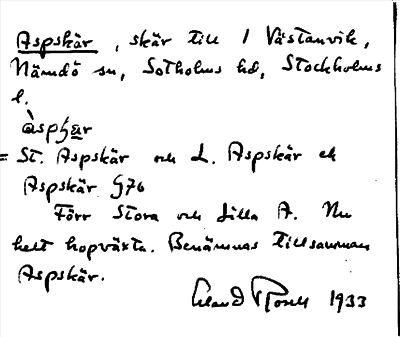 Aspskär, skär till 1 Västanvik,
Nämndö sn, Sotholms hd, Stockholms
l.
àspʃär
= St. Aspskär och L. Aspskär ek
Aspskär G76
Förr Stora och Lilla A. Nu
helt hopväxta. Benämnas tillsamman
Aspskär.
Erland Rosell 1933